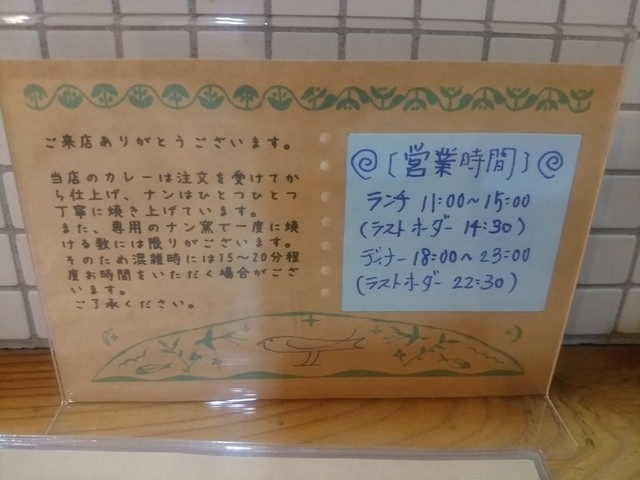 ご来店ありがとうございます。
当店のカレーは注文を受けてか
ら仕上げ、ナンはひとつひとつ
丁寧に焼き上げています。
また、専用のナン窯で一度に焼
ける数には限りがございます。
そのため混雑時には15〜20分程
度お時間をいただく場合がござ
います。
ご了承ください。
[営業時間]
ランチ 11:00〜15:00
(ラストオーダー 14:30)
ディナー 18:00〜23:00
(ラストオーダー 22:30)